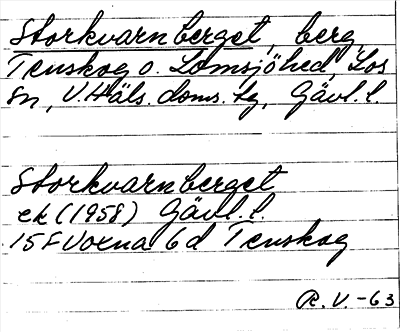 Storkvarnberget, berg,
Tenskog o. Lomsjöhed, Los
sn, V. Häls. doms. tg, Gävl. l.
Storkvarnberget
ek (1958) Gävl. l.
15F Voxna 6d Tenskog
R. V. -63